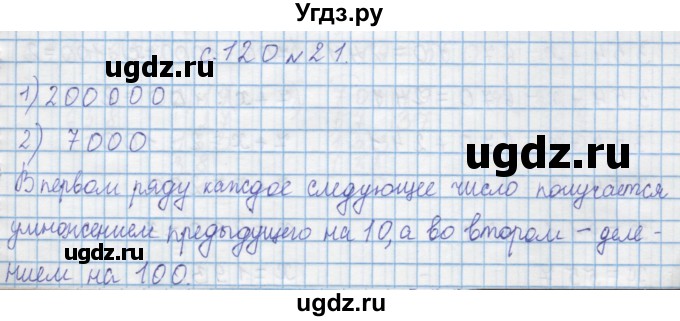 Угдз.ру
с.120 №21.
ugdz.ru
ugdz.ru
1) 200000
2) 7000
ugdz.ru
В первом ряду каждое следующее число получается
умножением предыдущего на 10, а во втором – деле-
ugdz.ru
нием на 100.
ugdz.ru
ugdz.ru